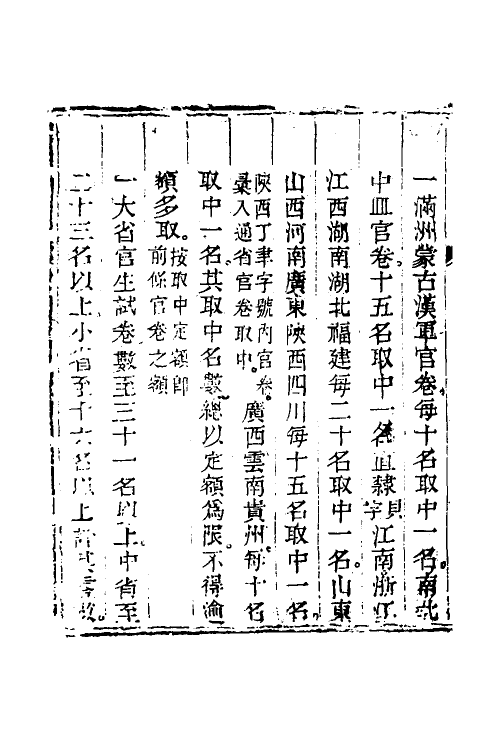 一滿洲蒙古漢軍官卷每十名取中一名南北
中皿官卷十五名取中一名直隸貝字江南浙江
江西湖南湖北福建每二十名取中一名山東
山西河南廣東陝西四川每十五名取中一名
陝西丁聿字號內官卷彙入通省官卷取中廣西雲南貴州每十名
取中一名其取中名數總以定額為限不得逾
額多取按取中定額即前條官卷之額
一大省官生試卷數至三十一名以上中省至
二十三名以上小省至十六名以上